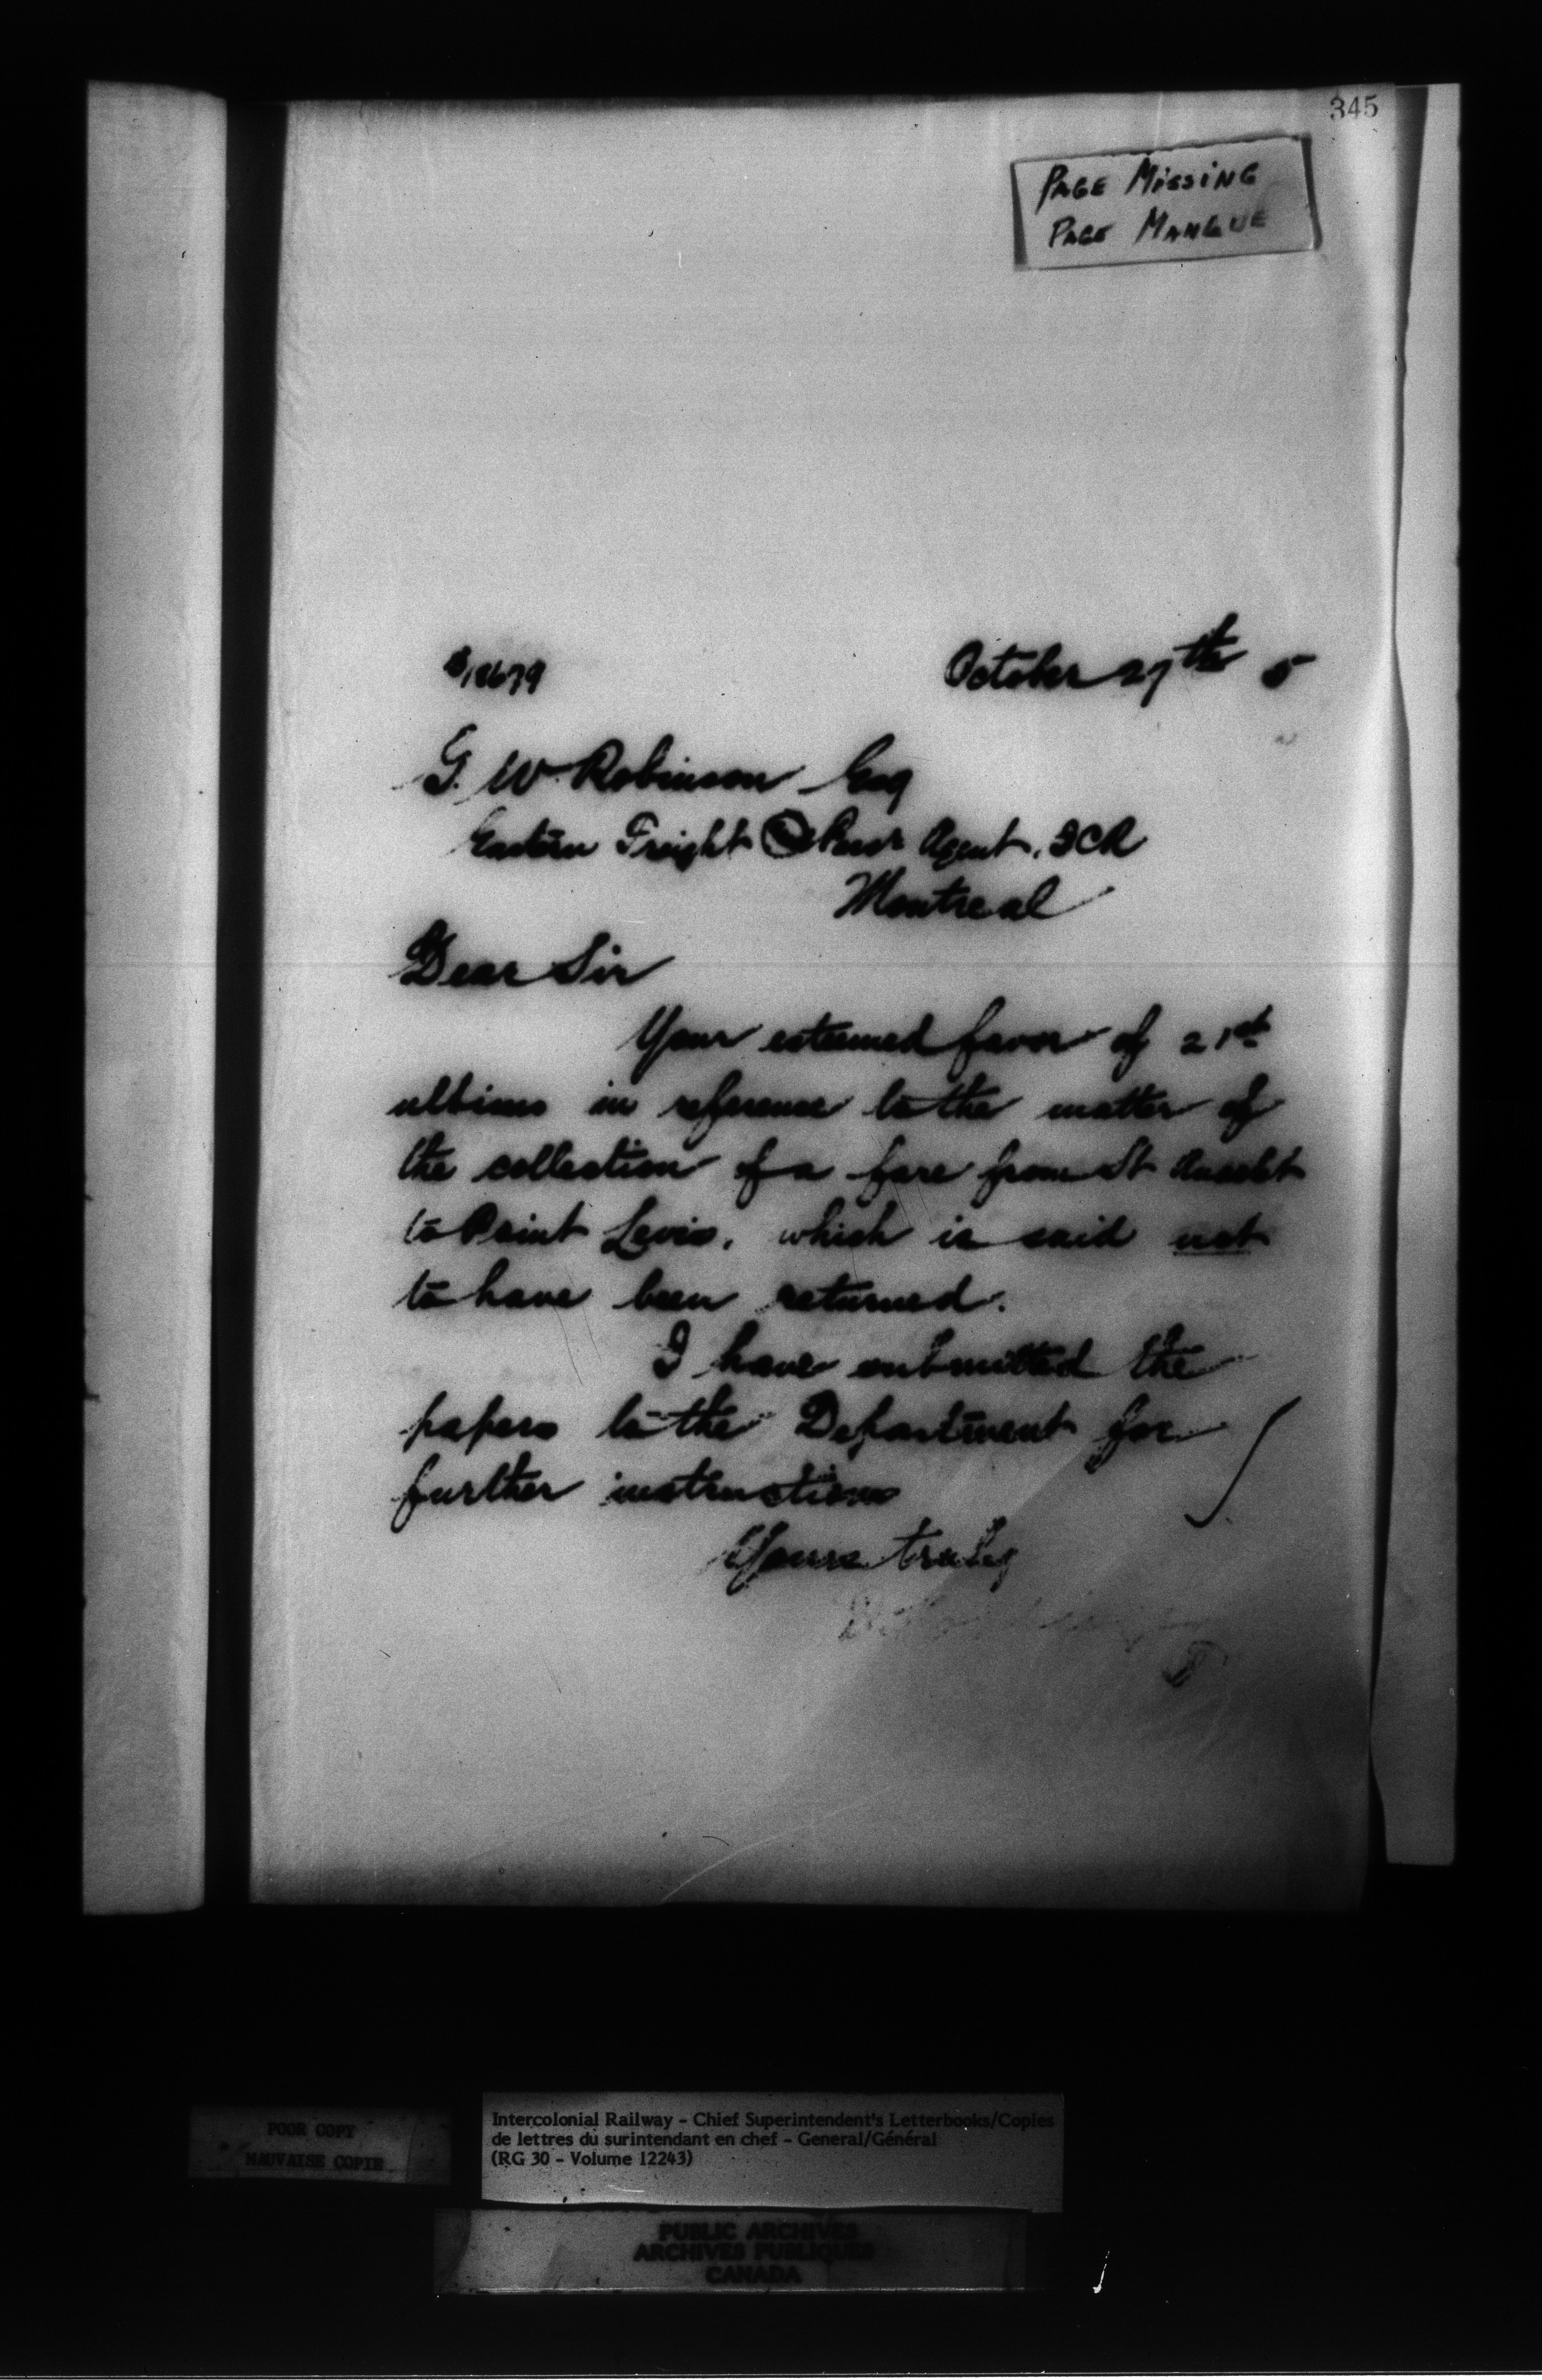 345
PAGE MISSING
PAGE MANQUE
October 27th 5
G. W. Robinson Esq
Eastern Freight & Pass Agent. ICR
Montreal
Dear Sir
Your esteemed favor of 21st
ultimo in reference to the matter of
the collection of a fare from St
to Point Levis, which is said not
to have been returned.
I have submitted the
papers to the Department for
further instructions
Yours truly
POOR COPY
MAUVAISE COPIE
Intercolonial Railway - Chief Superintendent's Letterbooks/Copies
de lettres du surintendant en chef - General/Général
(RG 30 - Volume 12243)
PUBLIC ARCHIVES
ARCHIVES PUBLIQUES
CANADA